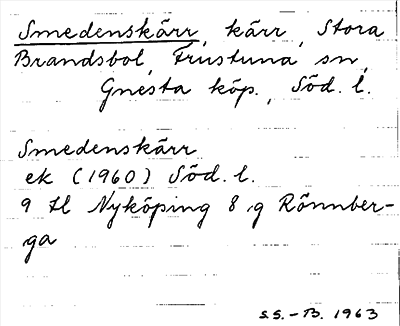 Smedenskärr, kärr, Stora
Brandsbol, Frustuna sn,
Gnesta köp., Söd. l.
Smedenskärr
ek (1960) Söd. l.
9 H Nyköping 8 g Rönnber-
ga
S.S.-B. 1963